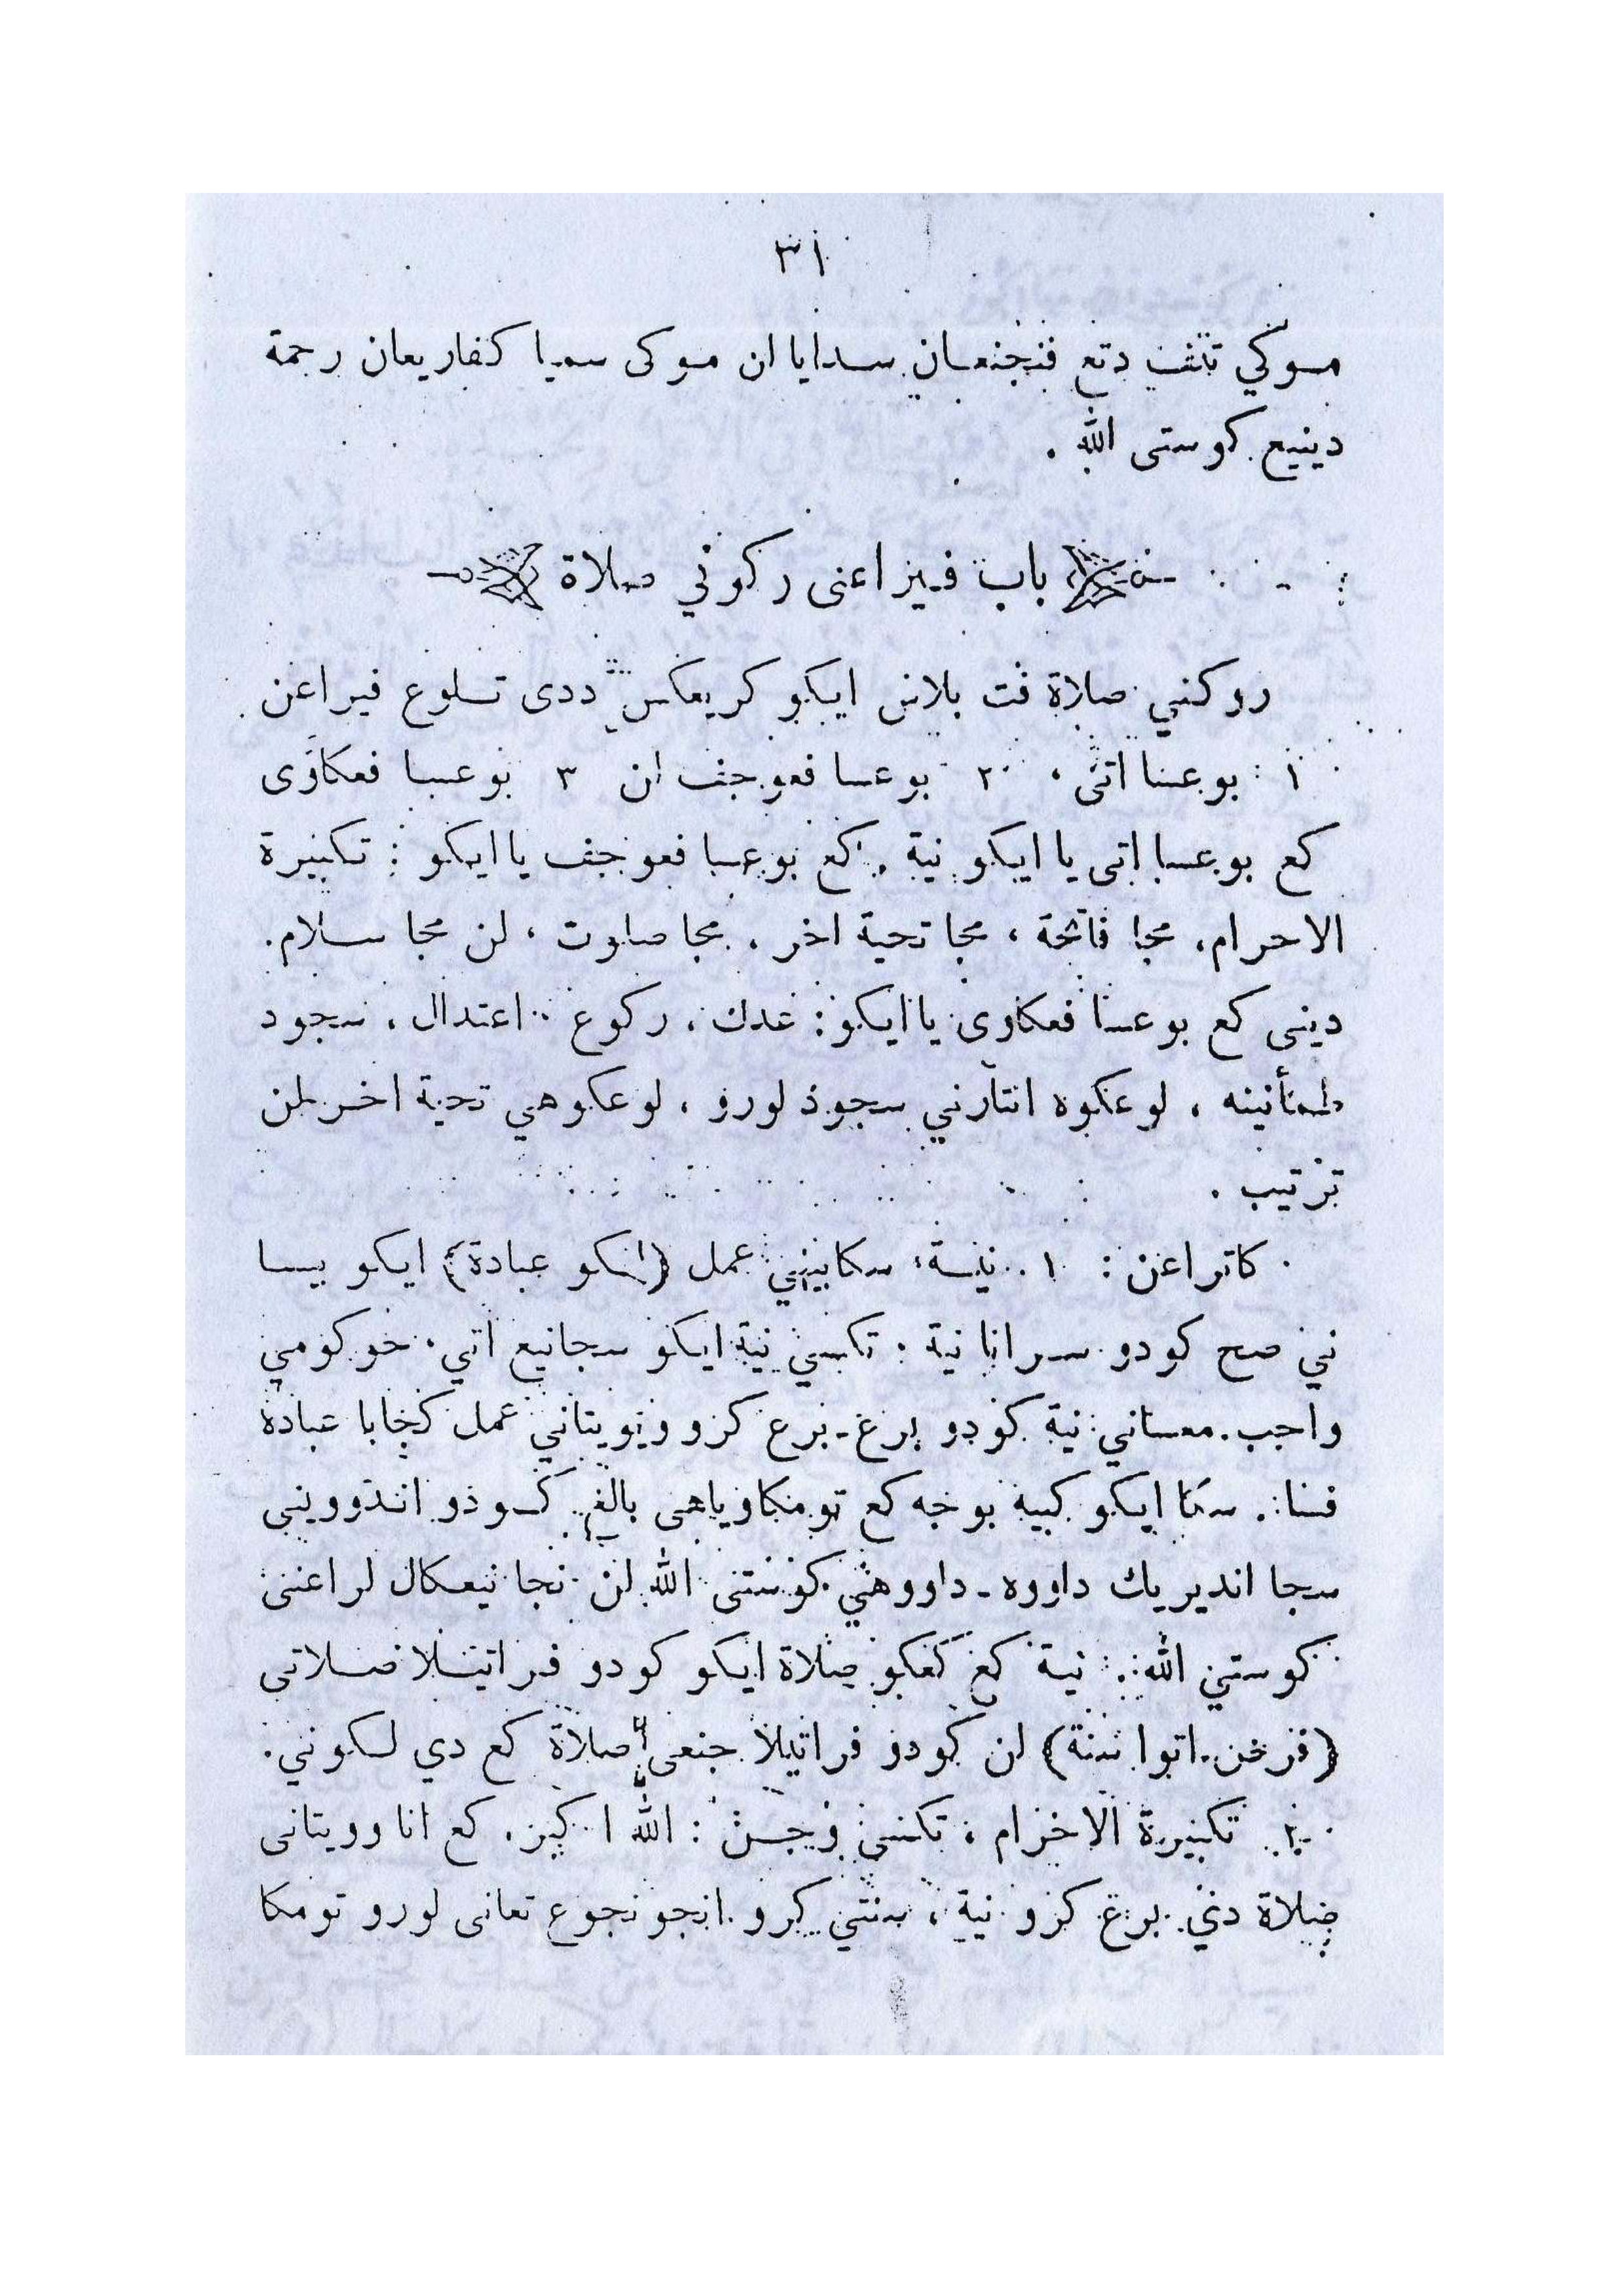 ٣١
موكي تتف دتع فنجنعان سدايا ان موكى سميا كفاريعان رحمة
دينيع كوستى الله .
باب فيراعنى ركونى صلاة
روكنني صلاة فت بلاس ايكو كريعكس ددى تلوع فيراعن
١ : بوعسا اتى ، ٢ بوعسا فعوجف ان ٣ بوعسا فعكاوى
كع بوعسا اتى يا ايكو نية . كع بوعسا فعوجف يا ايكو : تكبيرة
الاحرام ، مجا فاتحة ، مجا تحية اخر ، مجا صلوت ، لن مجا سلام.
دينى كع بوعسا فعكاوى يا ايكو : عدك ، ركوع اعتدال ، سجود
طمأنينه ، لوعكوه انتارني سجود لورو ، لوعكوهي تحية اخر لن
ترتيب .
كاتراعن : ١ . نية ، سكابيهني عمل (انكو عبادة) ايكو بيسا
ني صح كودو سرانا نية . تكسي نية ايكو سجانيع اتي . حوكومي
واجب . معساني نية كودو برع - برع كرو ويويتاني عمل كجابا عبادة
فسا . ستا ايكو كبيه بوجه كع تومكاوياهى بالغ كودو اندوويني
سجا انديريك داووه - داووهي كوستى الله لن نجا نيعكال لراعنى
كوستي الله . نية كع كعكو صلاة ايكو كودو فراتيلا صلاتى
(فرضن . اتوا سنة) لن كودو فراتيلا جنعى صلاة كع دي لكوني .
٢. تكبيرة الاحرام ، تكسي وجن : الله اكبر . كع انا وويتانى
صلاة دني برع كرو نية ، سنتي كرو انجونجوع تعانى لورو تومكا